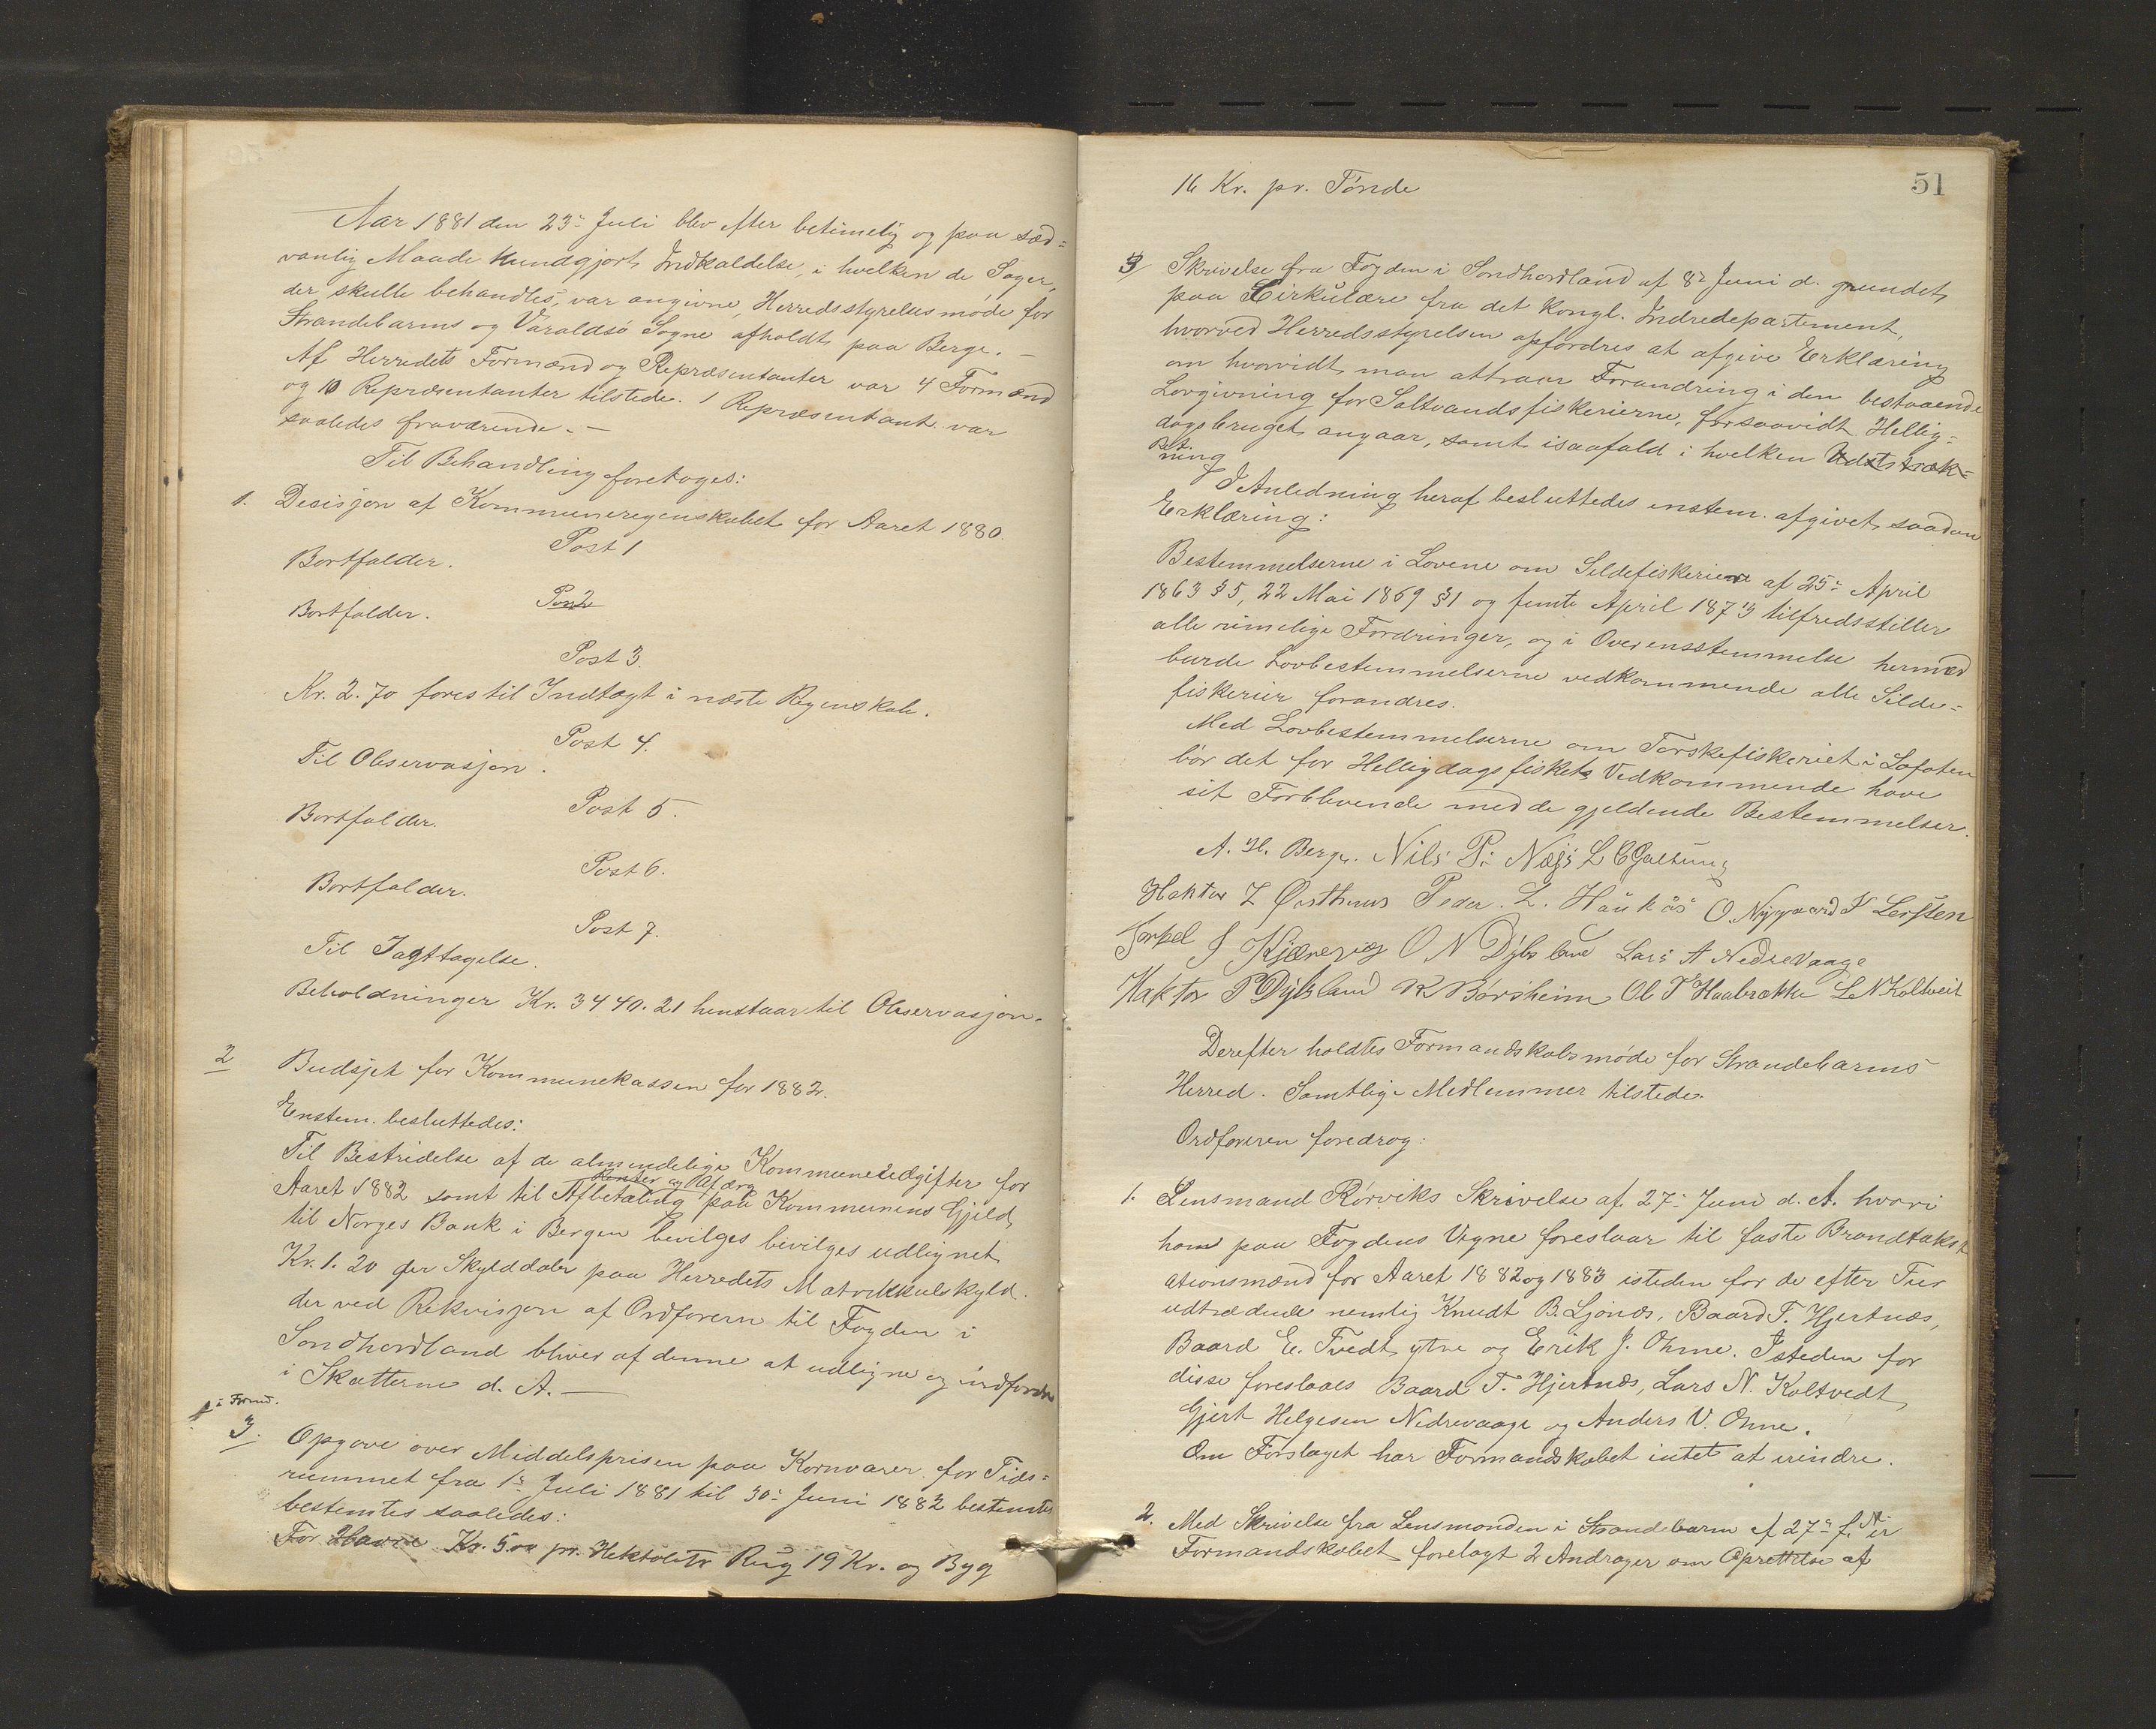 Aar 1881 den 23de Juli blev efter betimelig og paa sæd=
vanlig Maade kundgjort Indkaldelse, i hvilken de Sager,
der skulle behandles, var angivne, Herredsstyrelsesmøde for
Strandebarms og Varaldsø Sogne afholdt paa Berge. —
Af Herredets Formænd og Repræsentanter var 4 Formænd
og 10 Repræsentanter tilstede. 1 Repræsentant var
saaledes fraværende. —
Til Behandling foretoges:
1. Decisjon af Kommuneregenskabet for Aaret 1880.
Post 1
Bortfalder.
Post 2
Bortfalder.
Post 3.
Kr. 2.70 føres til Indtægt i næste Regnskab.
Post 4.
Til Observasjon.
Post 5.
Bortfalder.
Post 6.
Bortfalder.
Post 7.
Til Iagttagelse.
Beholdninger Kr. 3440.21 henstaar til Observasjon.
2 Budsjet for Kommunekassen for 1882.
Enstem. besluttedes:
Til Bestridelse af de almindelige Kommuneudgifter for
Renter og Afdrag
Aaret 1882 samt til Afbetaling paa Kommunens Gjeld
til Norges Bank i Bergen bevilges bevilges udlignet
Kr. 1.20 per Skylddaler paa Herredets Matrikkulskyld.
der ved Rekvisjon af Ordføreren til Fogden i
Søndhordland bliver af denne at udligne og indfordre
i Skatterne d. A. —
1 i Formd.
3. Opgave over Middelsprisen paa Kornvarer for Tids=
rummet fra 1ste Juli 1881 til 30te Juni 1882 bestemtes
bestemtes saaledes:
For Havre Kr. 5.00 pr. Hektoliter Rug 19 Kr. og Byg
51
16 Kr. pr. Tønde
3/ Skrivelse fra Fogden i Søndhordland af 8de Juni d. grundet
paa Cirkulære fra det kongl. Indredepartement,
hvorved Herredsstyrelsen opfordres at afgive Erklæring
om hvorvidt man attraar Forandring i den bestaaende
Lovgivning for Saltvandsfiskerierne, forsaavidt Hellig=
dagsbruget angaar, samt isaafald i hvilken Udstræk=
ning
I Anledning heraf besluttedes enstem. afgivet saadan
Erklæring:
Bestemmelserne i Lovene om Sildefiskerierne af 25de April
1863 §5, 22 Mai 1869 §1 og femte April 1873 tilfredsstiller
alle rimelige Fordringer, og i Overensstemmelse hermed
burde Lovbestemmelserne vedkommende alle Silde=
fiskerier forandres.
Med Lovbestemmelserne om Torskefiskeriet i Lofoten
bør det for Helligdagsfiskets Vedkommende have
sit Forblivende med de gjeldende Bestemmelser.
A. H. Berge. Nils P. Næss L C Galtung
Haktor L Østhuus Peder. L. Haukås O. Nygaard
Torkel J O N Dybsland Lars A Nedrevaage
Haktor P Dybsland K Børsheim Ol T Haabrække L N Koltveit
Derefter holdtes Formandskabsmøde for Strandebarms
Herred. Samtlige Medlemmer tilstede.
Ordføreren foredrog:
1. Lensmand Rørviks Skrivelse af 27de Juni d. A. hvori
han paa Fogdens Vegne foreslaar til faste Brandtakst
ationsmænd for Aaret 1882 og 1883 isteden for de efter Tur
udtrædende nemlig Knudt B. Ljones, Baard T. Hjertnæs,
Baard E. Tvedt ytre og Erik J. Ohme. Isteden for
disse foreslaaes Baard T. Hjertnæs, Lars N. Koltvedt
Gjert Helgesen Nedrevaage og Anders V. Ohme.
Om Forslaget har Formandskabet intet at erindre.
2. Med Skrivelse fra Lensmanden i Strandebarm af 27de f. M. er
Formandskabet forelagt 2 Andrager om Oprettelse af